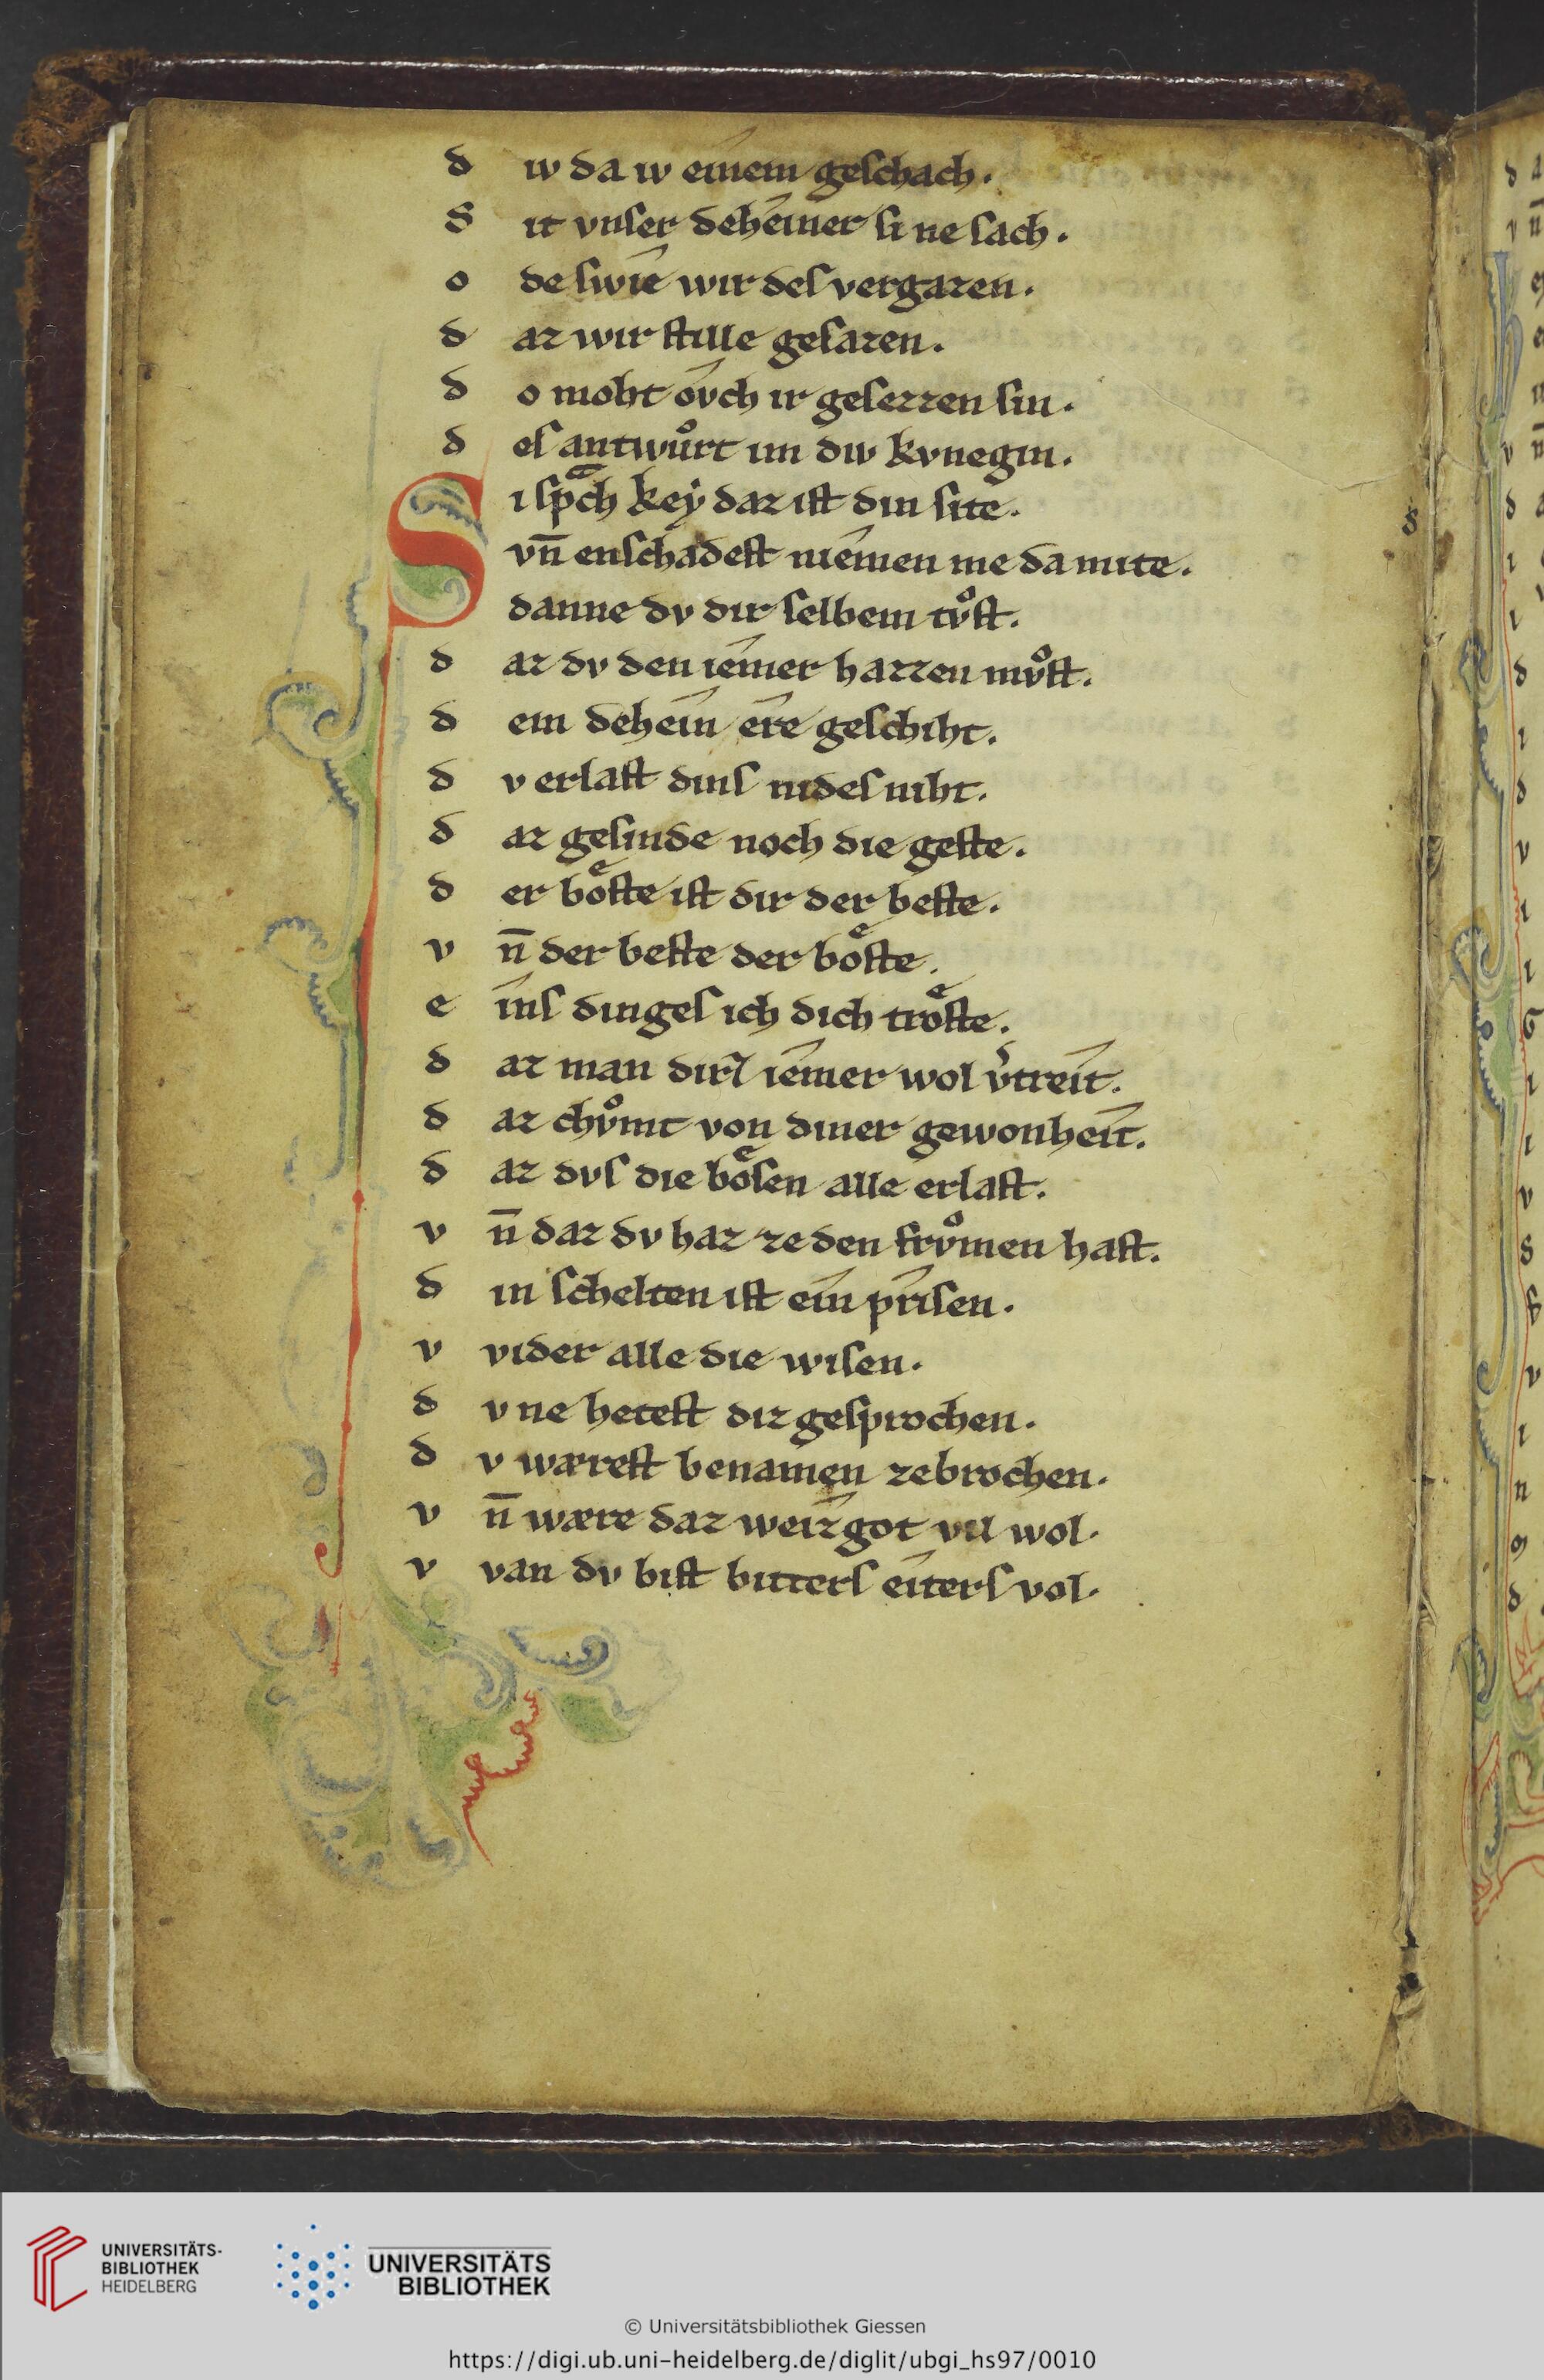 d iv da iv einem geschach.
S it vnser deheiner si ne sach.
o de swie wir des vergazen.
d az wir stille gesazen.
d o moht ovch ir gesezzen sin.
d es antwuͦrt im div kvnegin.
Si spͣch key daz ist din site.
vn̄ enschadest niemen me da mite.
danne dv dir selbem tvͦst.
d az dv den iemer hazzen mvͦst.
d em dehein ere geschiht.
d v erlast dins nides niht.
d az gesinde noch die geste.
d er boͤste ist dir der beste.
v n̄ der beste der boͤste.
e ins dinges ich dich troͤste.
d az man dirz iemer wol v̓treit.
d az chvͦmt von diner gewonheit.
d az dvs die boͤsen alle erlast.
v n̄ daz dv haz ze den frvͦmen hast.
d in schelten ist ein prisen.
v vider alle die wisen.
d v ne hetest diz gesprochen.
d v wærest benamen zebrochen.
v n̄ wære daz weizgot vil wol.
v van dv bist bitters eiters vol.
UNIVERSITÄTS-
BIBLIOTHEK
HEIDELBERG
UNIVERSITÄTS
BIBLIOTHEK
© Universitätsbibliothek Giessen
https://digi.ub.uni-heidelberg.de/diglit/ubgi_hs97/0010